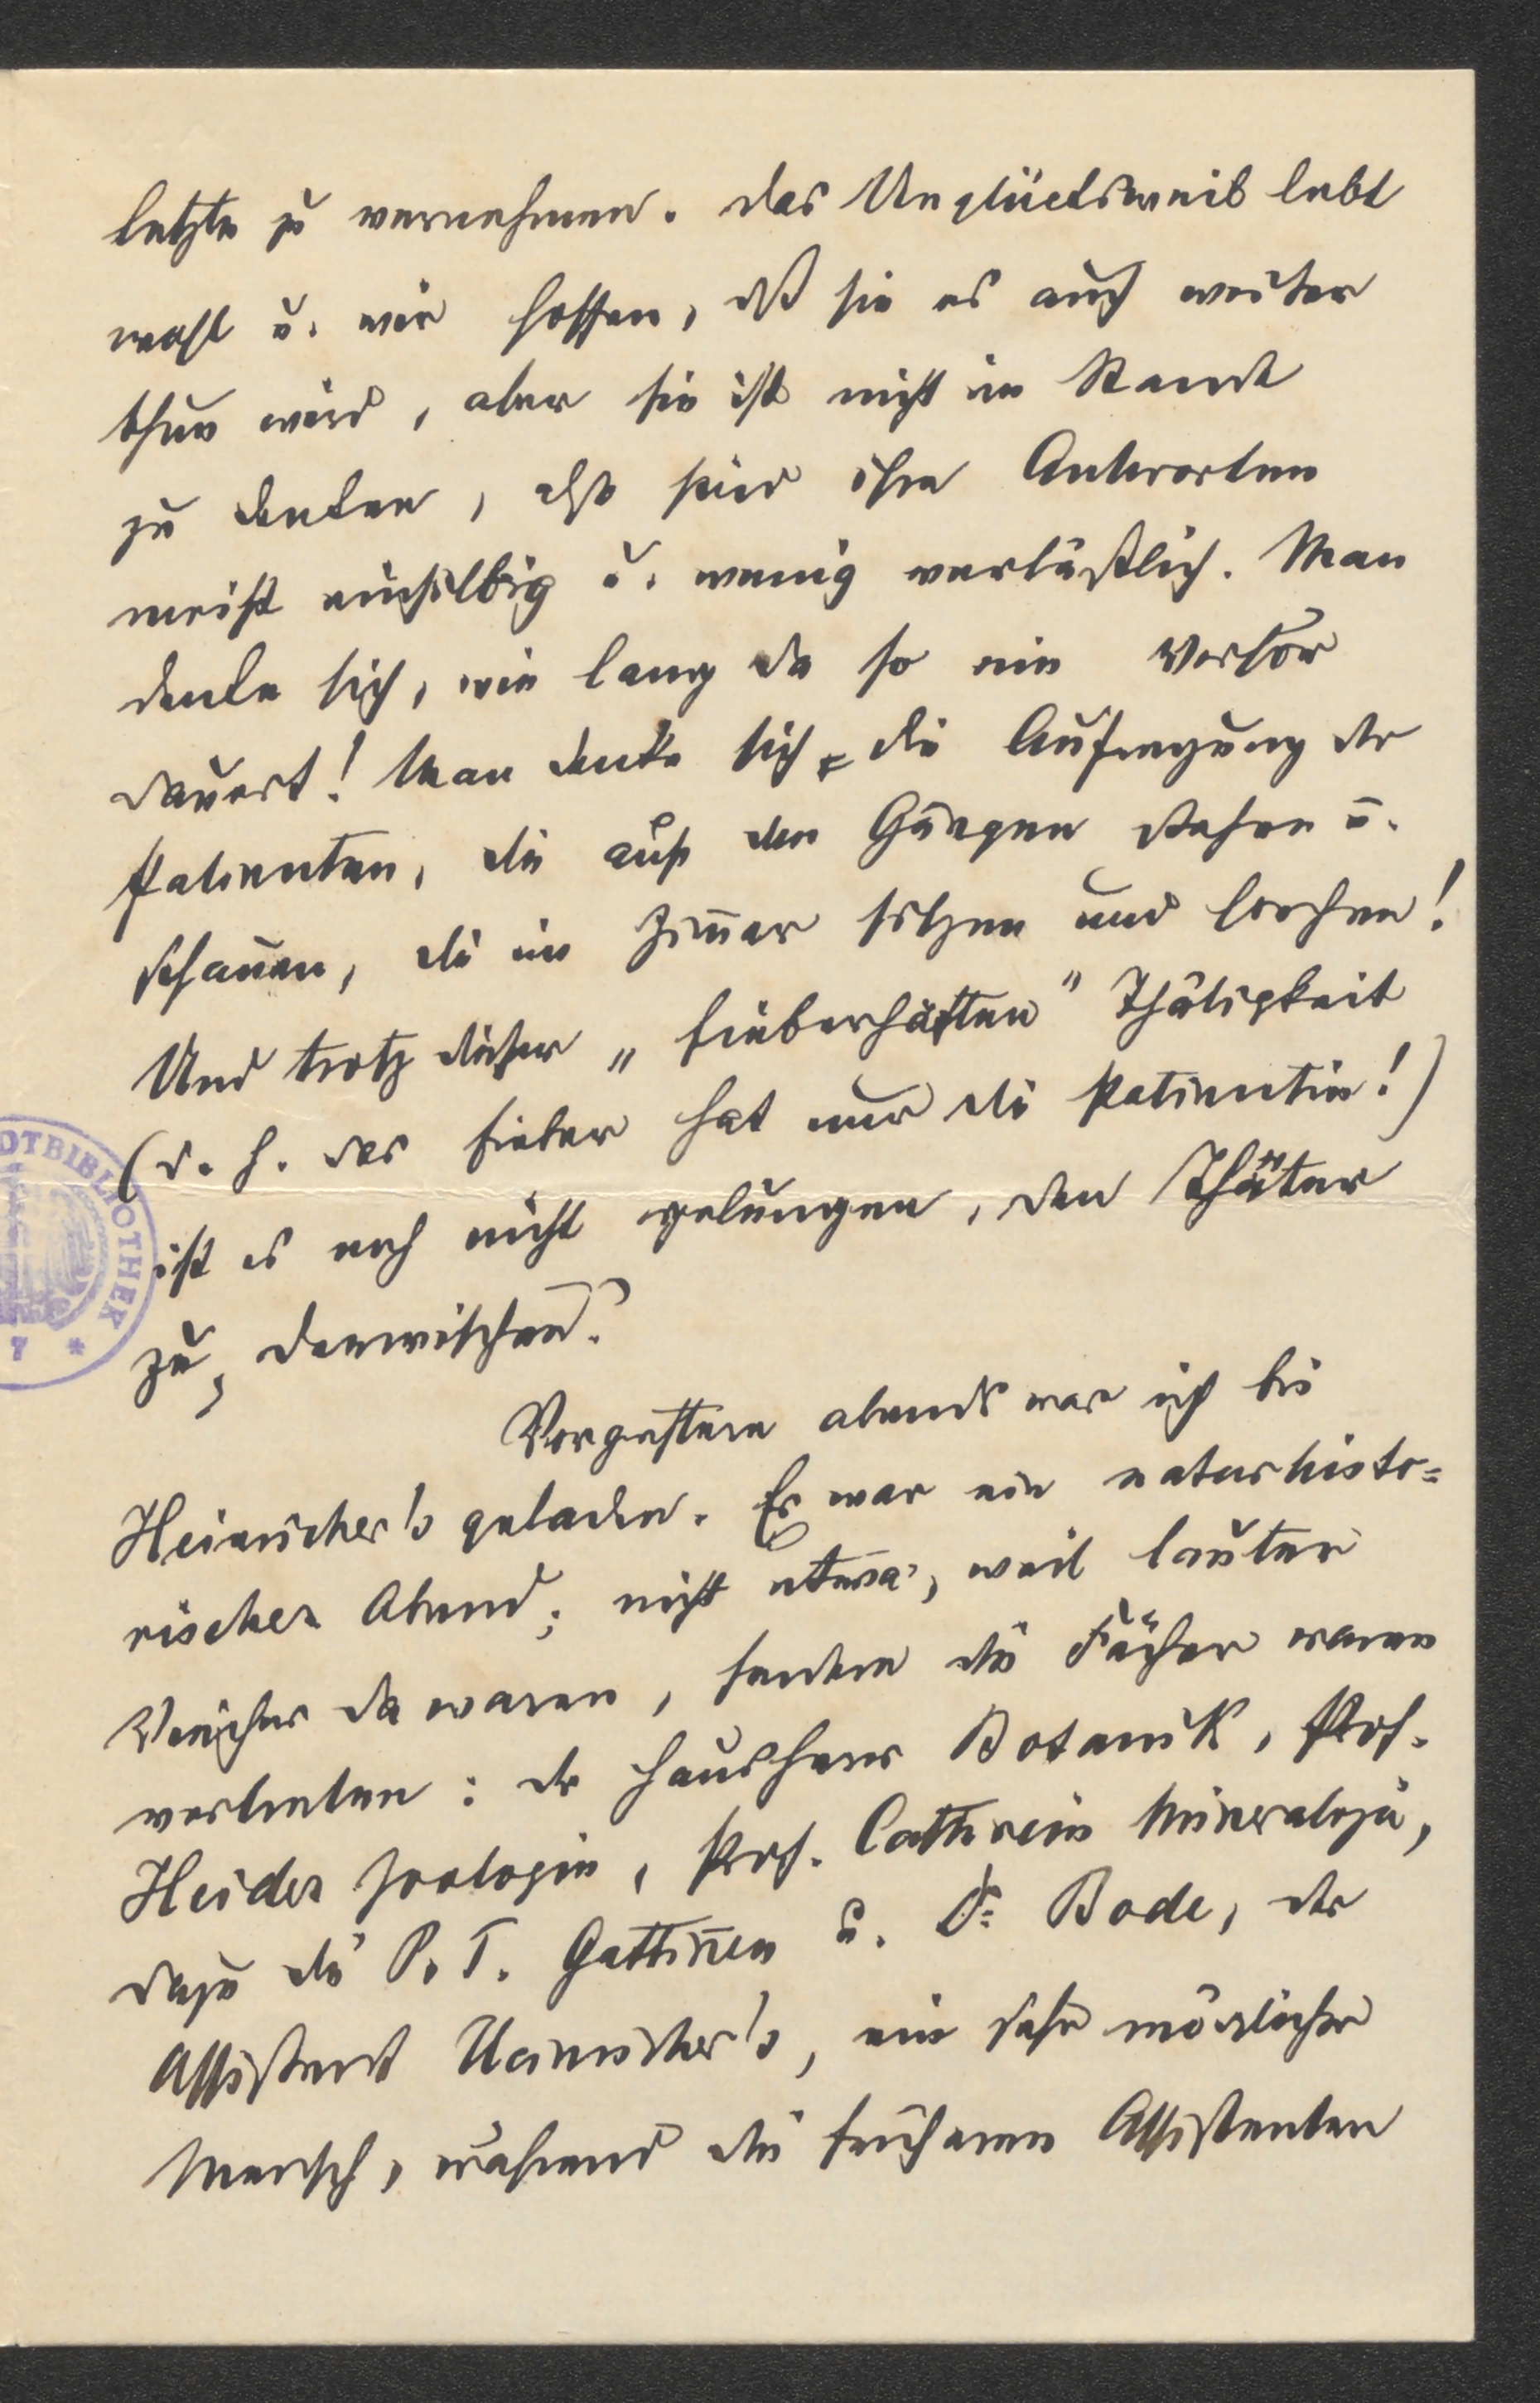 letzte zu vernehmen. Das Unglücksweib lebt
wohl u. wir hoffen, dß sie es auch weiter
thun wird, aber sie ist nicht im Stande
zu denken, also sind ihre Antworten
meist einsilbig u. wenig verläßlich. Man
denke sich, wie lang da so ein Verhör
dauert! Man denke sich die Aufregung der
Patienten, die auf den Gängen stehen u.
schauen, die im Zim̅er sitzen und horchen!
Und trotz dieser „fieberhaften" Thätigkeit
(d. h. das Fieber hat nur die Patientin!)
ist es noch nicht gelungen, den Thäter
zu derwischen.
Vorgestern abends war ich bei
Heinricher's geladen. Es war ein naturhisto=
rischer Abend; nicht etwa, weil lauter
Viecher da waren, sondern die Fächer waren
vertreten: der Hausherr Botanik, Prof.
Heider Zoologie, Prof. Cathrein Mineralogie,
dazu die P. T. Gattin̅en u. Dr. Bode, der
Assistent Heinricher's, ein sehr möglicher
Mensch, während die früheren Assistenten
DTBIBLIOTHEK